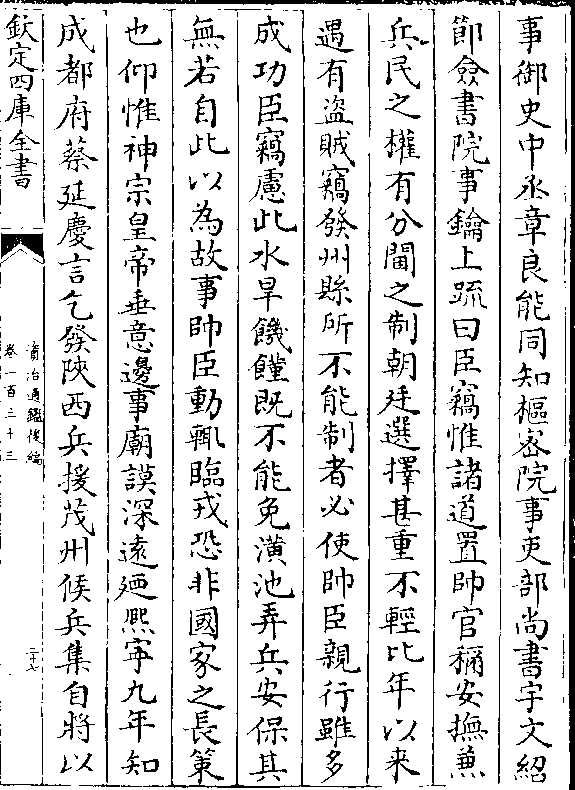 事御史中丞章良能同知樞密院事吏部尚書宇文紹
節僉書院事鑰上疏曰臣竊惟諸道置帥官稱安撫兼
兵民之權有分閫之制朝廷選擇甚重不輕比年以來
遇有盗賊竊發州縣所不能制者必使帥臣親行雖多
成功臣竊慮此水旱饑饉既不能免潢池弄兵安保其
無若自此以為故事帥臣動輒臨戎恐非國家之長策
也仰惟神宗皇帝垂意邊事廟謨深遠廼熙寜九年知
成都府蔡延慶言乞發陜西兵援茂州候兵集自將以
欽定四庫全書
資治通鑑後編
卷一百三十三
二十七